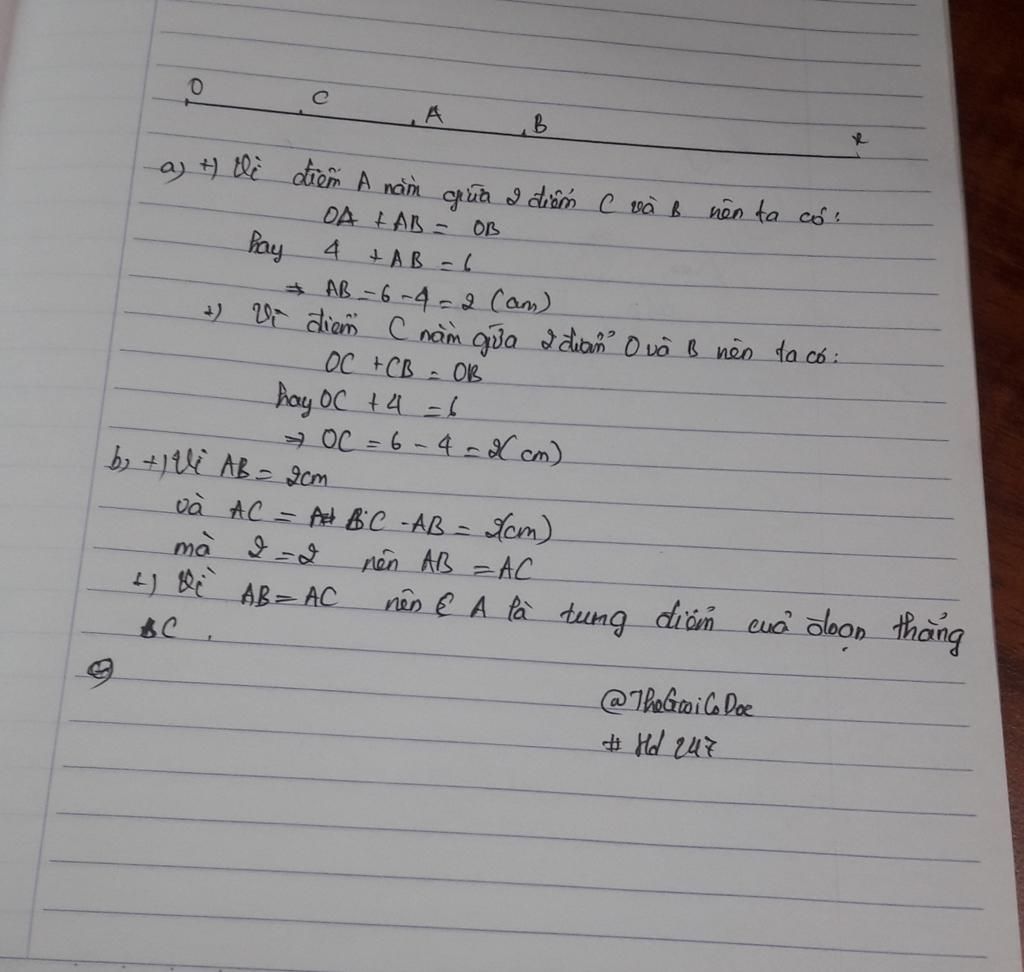 O C A B x
a) +) Vì điểm A nằm giữa 2 điểm C và B nên ta có:
OA + AB = OB
hay 4 + AB = 6
⇒ AB = 6 - 4 = 2 (cm)
+) Vì điểm C nằm giữa 2 điểm O và B nên ta có:
OC + CB = OB
hay OC + 4 = 6
⇒ OC = 6 - 4 = 2(cm)
b) +) Vì AB = 2cm
và AC = BC - AB = 2(cm)
mà 2 = 2 nên AB = AC
+) Vì AB = AC nên A là tung điểm cuả đoạn thẳng
BC.
# Hd 247